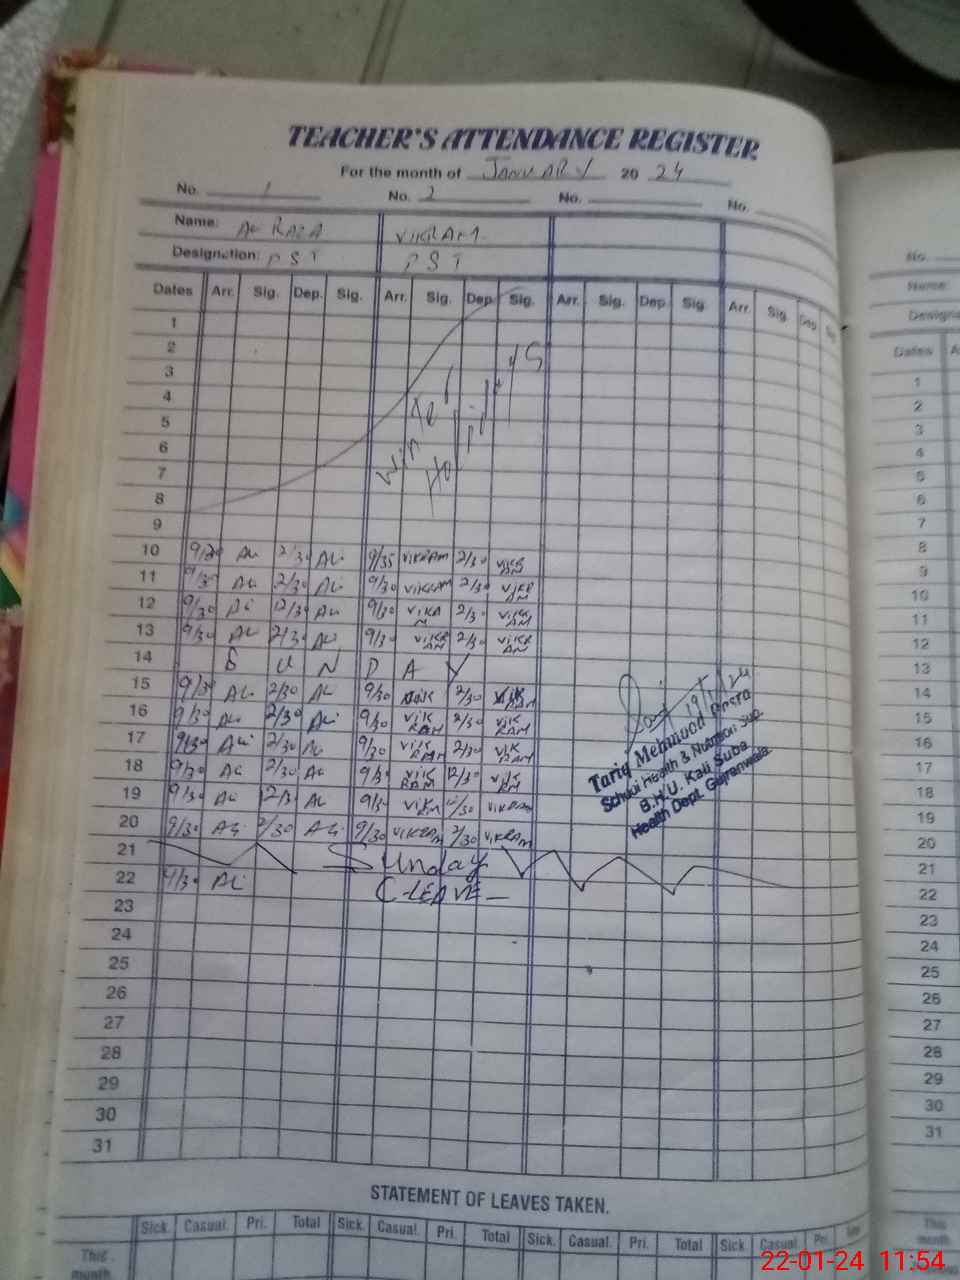 TEACHER'S ATTENDANCE REGISTER
For the month of JANUARY 20 24
No. 1 No. 2 No. No.
Name: VIKRAM
Designation: PST PST
Dates Arr. Sig. Dep. Sig. Arr. Sig. Dep Sig. Arr. Sig. Dep. Sig. Arr. Sig. Dep Sig
1
2
3
4
5
6
7
8
9
Winter
Holidays
10 2/30 Ali 9/35 VIKRAM 2/30 VIKRAM
11 9/35 Ali 2/30 Ali 9/30 VIKRAM 2/30 VIKRAM
12 9/30 Ali 2/30 Ali 9/30 2/30 VIKRAM
13 9/30 Ali 2/30 Ali 9/30 VIKRAM 2/30 VIKRAM
14 S U N D A Y
15 9/30 Ali 2/30 Ali 9/30 2/30
16 9/30 Ali 2/30 Ali 9/30 VIKRAM 2/30 VIKRAM
17 9/30 Ali 2/30 Ali 9/30 VIKRAM 2/30 VIKRAM
18 9/30 Ali 2/30 Ali 9/30 VIKRAM 2/30
19 9/30 Ali 2/30 Ali 9/30 2/30 VIKRAM
20 9/30 Ali 2/30 Ali 9/30 VIKRAM 2/30 VIKRAM
21 Sunday
22 9/30 Ali C-LEAVE
23
24
25
26
27
28
29
30
31
19/1/24
Tariq Mehmood
School Health & Nutrition Sup.
B.H.U. Kali Suba
Health Dept. Gujranwala
STATEMENT OF LEAVES TAKEN.
Sick. Casual. Pri. Total Sick. Casual. Pri. Total Sick. Casual. Pri. Total Sick Casual Pri. Total
This
month
No.
Name:
Dates
1
2
3
4
5
6
7
8
9
10
11
12
13
14
15
16
17
18
19
20
21
22
23
24
25
26
27
28
29
30
31
This
month
22-01-24 11:54